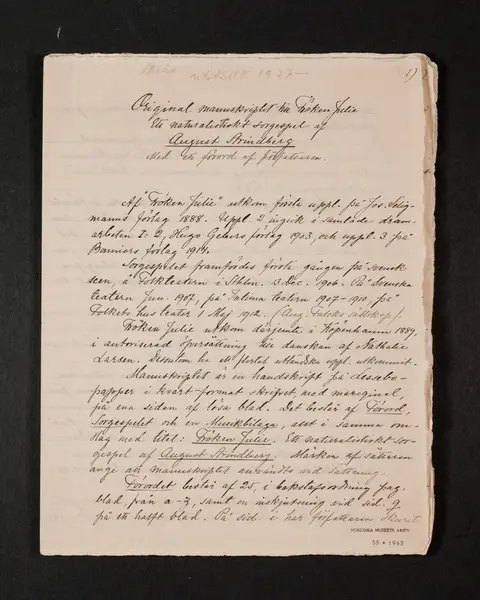 1937 –
1)
Original manuskriptet till Fröken Julie
Ett naturalistiskt sorgespel af
August Strindberg
Med ett förord af författaren.
Af "Fröken Julie" utkom första uppl. på Jos. Selig-
manns förlag 1888. Uppl. 2 ingick i samlade dram.
arbeten I: 2, Hugo Gebers förlag 1903, och uppl. 3 på
Bonniers förlag 1914.
Sorgespelet framfördes första gången på svensk
scen, å Folkteatern i Sthlm. 13 Dec. 1906. På Svenska
teatern Jan. 1907, på Intima teatern 1907–1910, på
Folkets hus teater 1 Maj 1912. (Aug. Falcks sällskap).
Fröken Julie utkom därjemte i Köpenhamn 1889,
i autoriserad öfversättning till danskan af Nathalie
Larsen. Dessutom ha ett flertal utländska uppl. utkommit.
Manuskriptet är en handskrift på Lessebo-
papper i kvart-format skrifvet med marginal,
på ena sidan af lösa blad. Det består af Förord,
Sorgespelet och en Musikbilaga, allt i samma om-
slag med titel: Fröken Julie. Ett naturalistiskt sor-
gespel af August Strindberg. Märken af sättaren
ange att manuskriptet användts vid sättning.
Förordet består af 25, i bokstafsordning pag.
blad från a–z, samt en inskjutning vid sid. g
på ett halft blad. På sid. i har författaren skrivit
NORDISKA MUSEETS ARKIV
50 • 1962